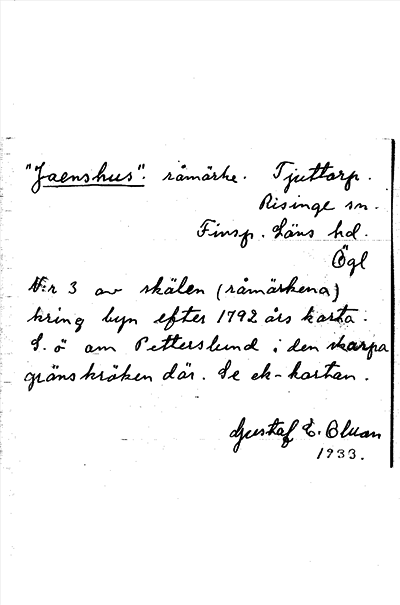 "Jaenshus". råmärke. Tjuttorp.
Risinge sn.
Finsp. Läns hd.
Ögl
N:r 3 av skälen (råmärkena)
kring byn efter 1792 års karta.
S. ö om Petterslund i den skarpa
gränskröken där. Se ek-kartan.
Gustaf E. Bluan
1933.